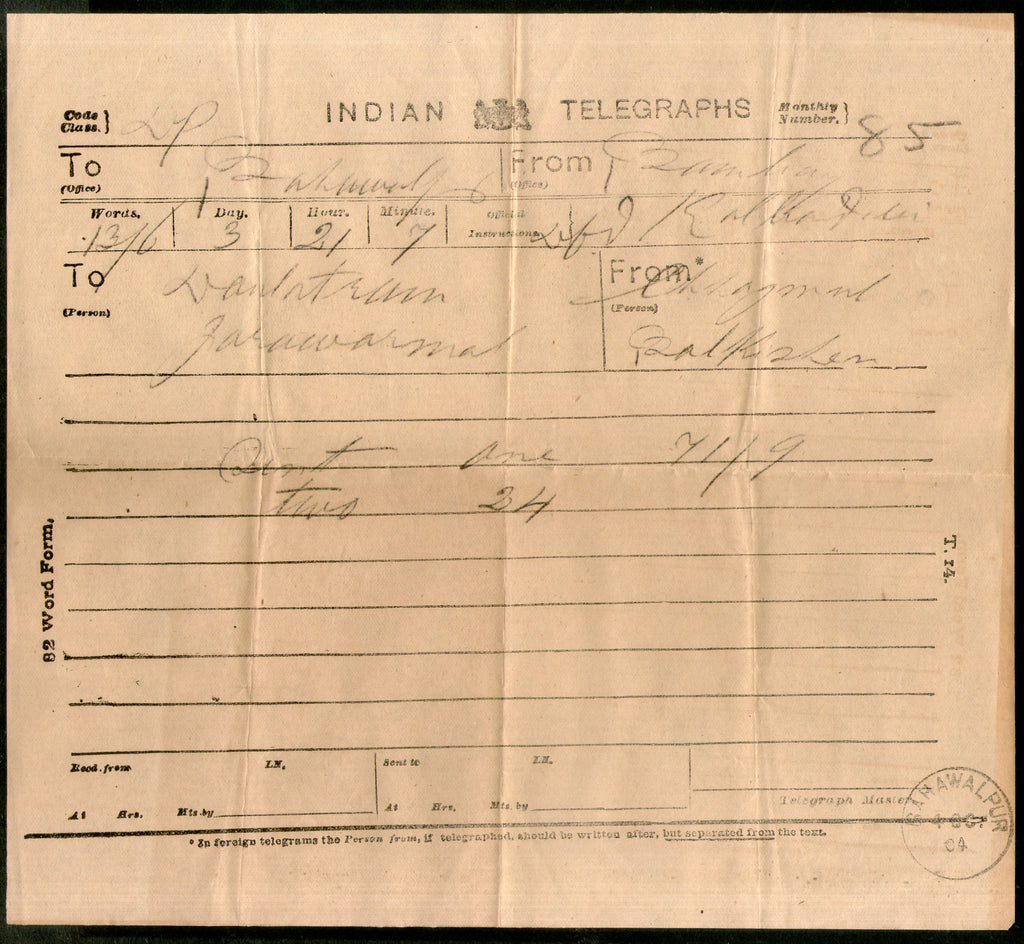 Code
Class. }
INDIAN TELEGRAPHS
Monthly
Number. } 85
To
(Office)
From
(Office)
Words. Day. Hour. Minute. Official
Instructions
13/6 3 21 7
To
(Person)
Daulatram
Jorawarmal
From*
(Person)
Balkishen
one 71/9
two 24
82 Word Form.
T. 14.
Recd. from LN.
At Hrs. Mts. by
Sent to LN.
At Hrs. Mts. by
Telegraph Master
BAHAWALPUR
04
* In foreign telegrams the Person from, if telegraphed, should be written after, but separated from the text.